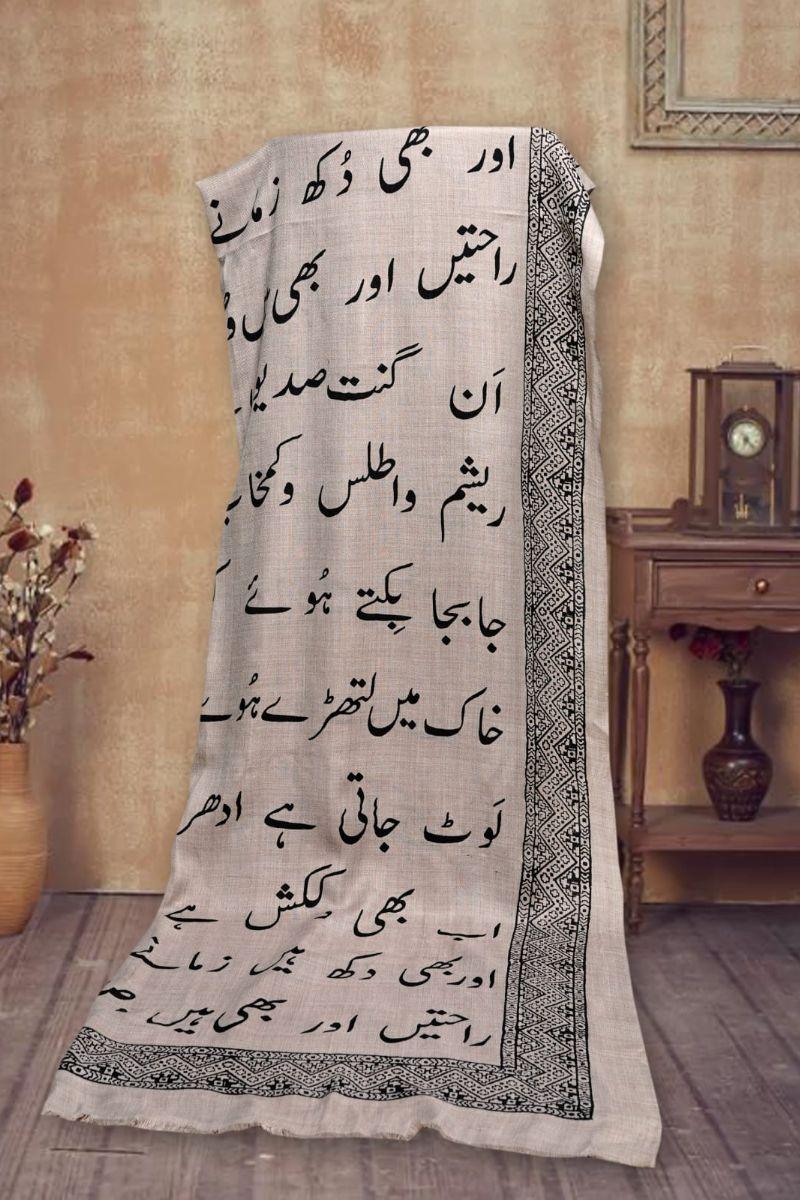 اور بھی دُکھ زمانے
راحتیں اور بھی
اَن گنت صدیوں
ریشم و اطلس و کمخاب
جابجا بِکتے ہُوئے
خاک میں لتھڑے ہُوئے
لَوٹ جاتی ہے ادھر
اب بھی دلکش ہے
اور بھی دکھ ہیں زمانے
راحتیں اور بھی ہیں